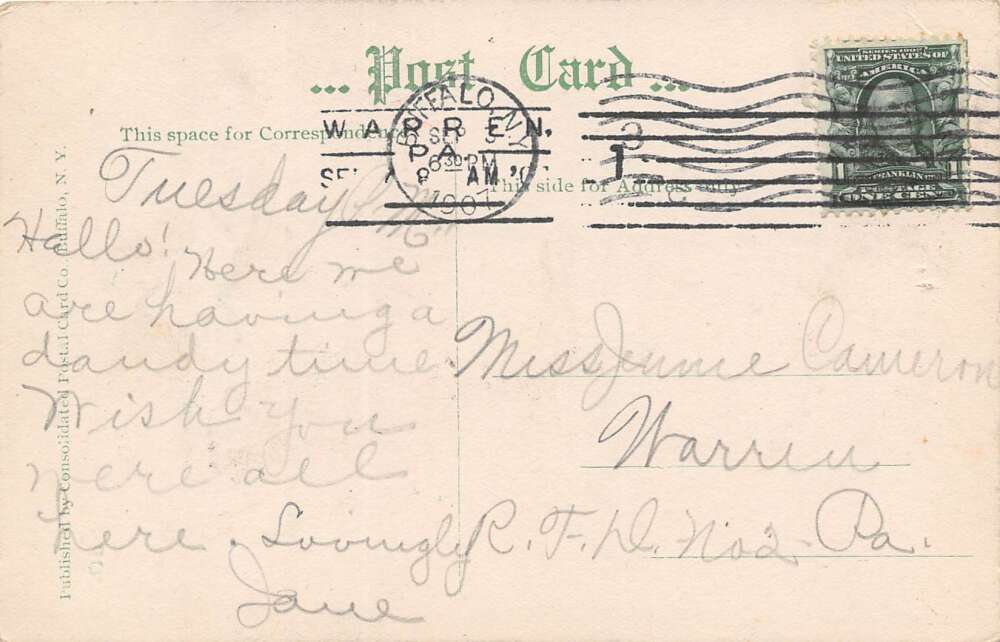 ... Post Card ...
This space for Correspondence
This side for Address only
BUFFALO, N.Y.
SEP
6 30 PM
1907
WARREN,
PA.
8 AM
1
SERIES 1902
UNITED STATES OF
AMERICA
FRANKLIN
POSTAGE
1 ONE CENT
Tuesday P.M.
Hello!
Here we
are having a
dandy time.
Wish you
were all
here. Lovingly
Jane
Miss Jennie Cameron
Warren
R.F.D. No 2 Pa.
Published by Consolidated Postal Card Co., Buffalo, N. Y.